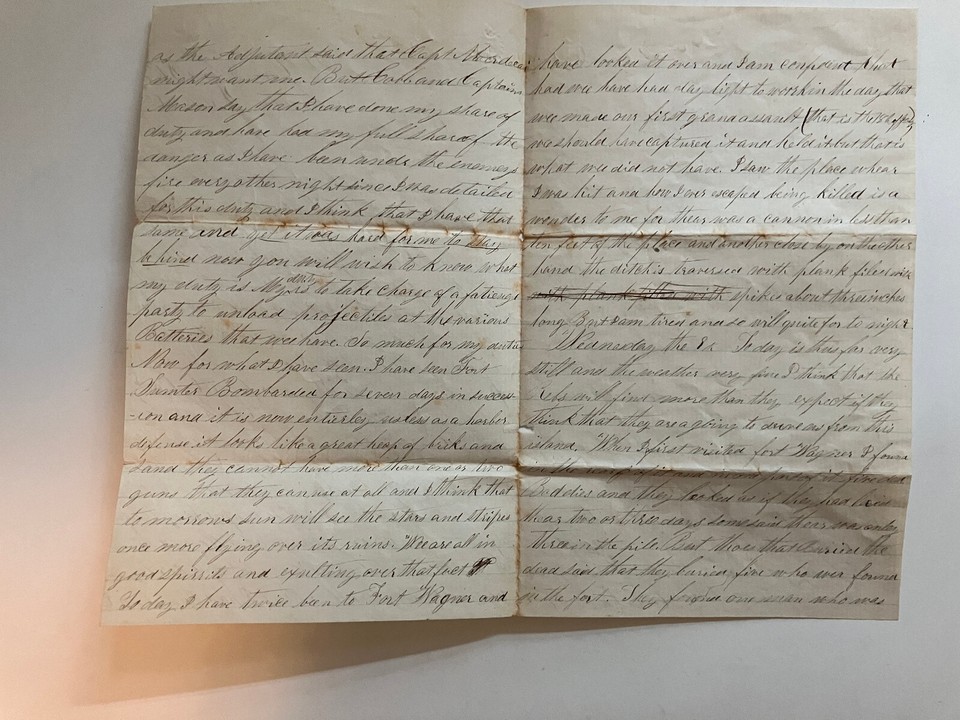 as the Adjutant said that Capt
might want me. But Captain
Mason say that I have done my share of
duty and have had my full share of the
danger as I have been under the enemys
fire every other night since I was detailed
for this duty and I think that I have that
same and yet it was hard for me to stay
behind now you will wish to know what
my duty is My duty is to take charge of a fatieuge
party to unload projectiles at the various
Batteries that we have. So much for my duties
Now for what I have seen I have seen Fort
Sumter Bombarded for seven days in success-
-ion and it is now entierley useless as a harbor
defense it looks like a great heap of brick and
sand they cannot have more than one or two
guns that they can use at all and I think that
to morrows sun will see the stars and stripes
once more flying over its ruins. We are all in
good spirrits and exulting over that fact
To day I have twice been to Fort Wagner and
have looked it over and I am confident that
had we have had day light to work in the day that
we made our first grand assault (that is the
we should have captured it and held it but that is
what we did not have. I saw the place whear
I was hit and how I ever escaped being killed is a
wonder to me for thear was a cannon in less than
ten feet of the place and another close by on the other
hand the ditch is traversed with plank filed with
with plank filled with spikes about three inches
long But I am tired and so will quit for to night
Wednesday the To day is thus far very
still and the weather very fine I think that the
Rebs will find more than they expect if they
think that they are a going to drive us from this
island. When I first visited fort Wagner I found
in part of it five ded
Boddies and they looked as if they had
thear two or three days some said thear was only
three in the pile. But those that buried the
dead said that they buried five who wer found
in the fort. They found one man who was